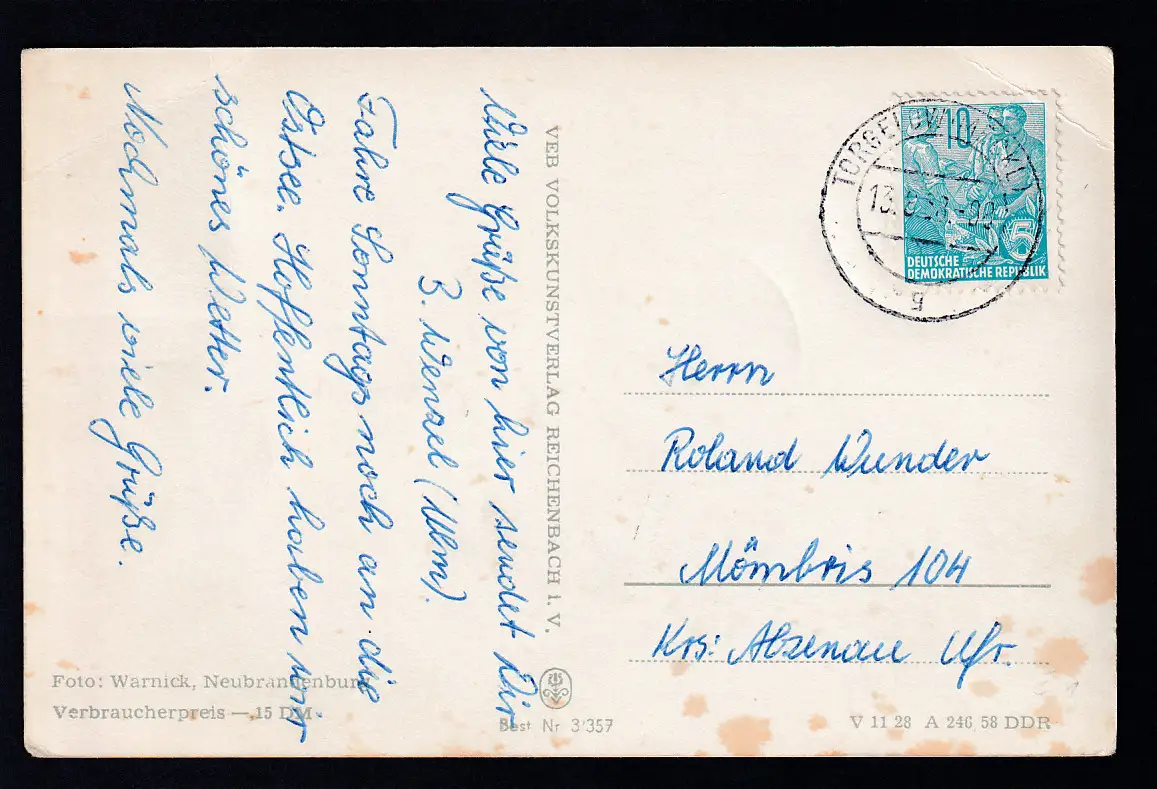 Viele Grüße von hier sendet Dir
3. Wenzel (Ulm).
Fahre Sonntags noch an die
Ostsee. Hoffentlich haben wir
schönes Wetter.
Nochmals viele Grüße.
VEB VOLKSKUNSTVERLAG REICHENBACH i. V.
10
5
DEUTSCHE
DEMOKRATISCHE REPUBLIK
TORGELOW
13.
g
Herrn
Roland Wunder
Mömbris 104
Krs: Alzenau Ufr.
Foto: Warnick, Neubrandenburg
Verbraucherpreis —.15 DM
Best Nr 3'357
V 11 28 A 246 58 DDR